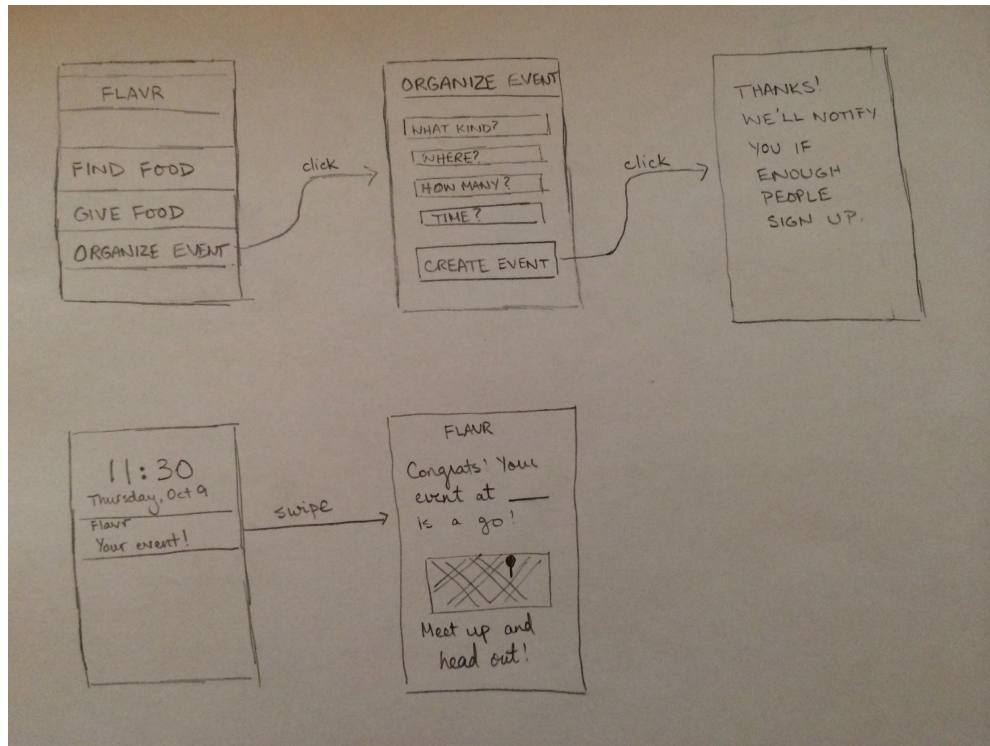 FLAVR
FIND FOOD
GIVE FOOD
ORGANIZE EVENT
click
ORGANIZE EVENT
WHAT KIND?
WHERE?
HOW MANY?
TIME?
CREATE EVENT
click
THANKS!
WE'LL NOTIFY
YOU IF
ENOUGH
PEOPLE
SIGN UP.
11:30
Thursday, Oct 9
Flavr
Your event!
swipe
FLAVR
Congrats! Your
event at ____
is a go!
Meet up and
head out!